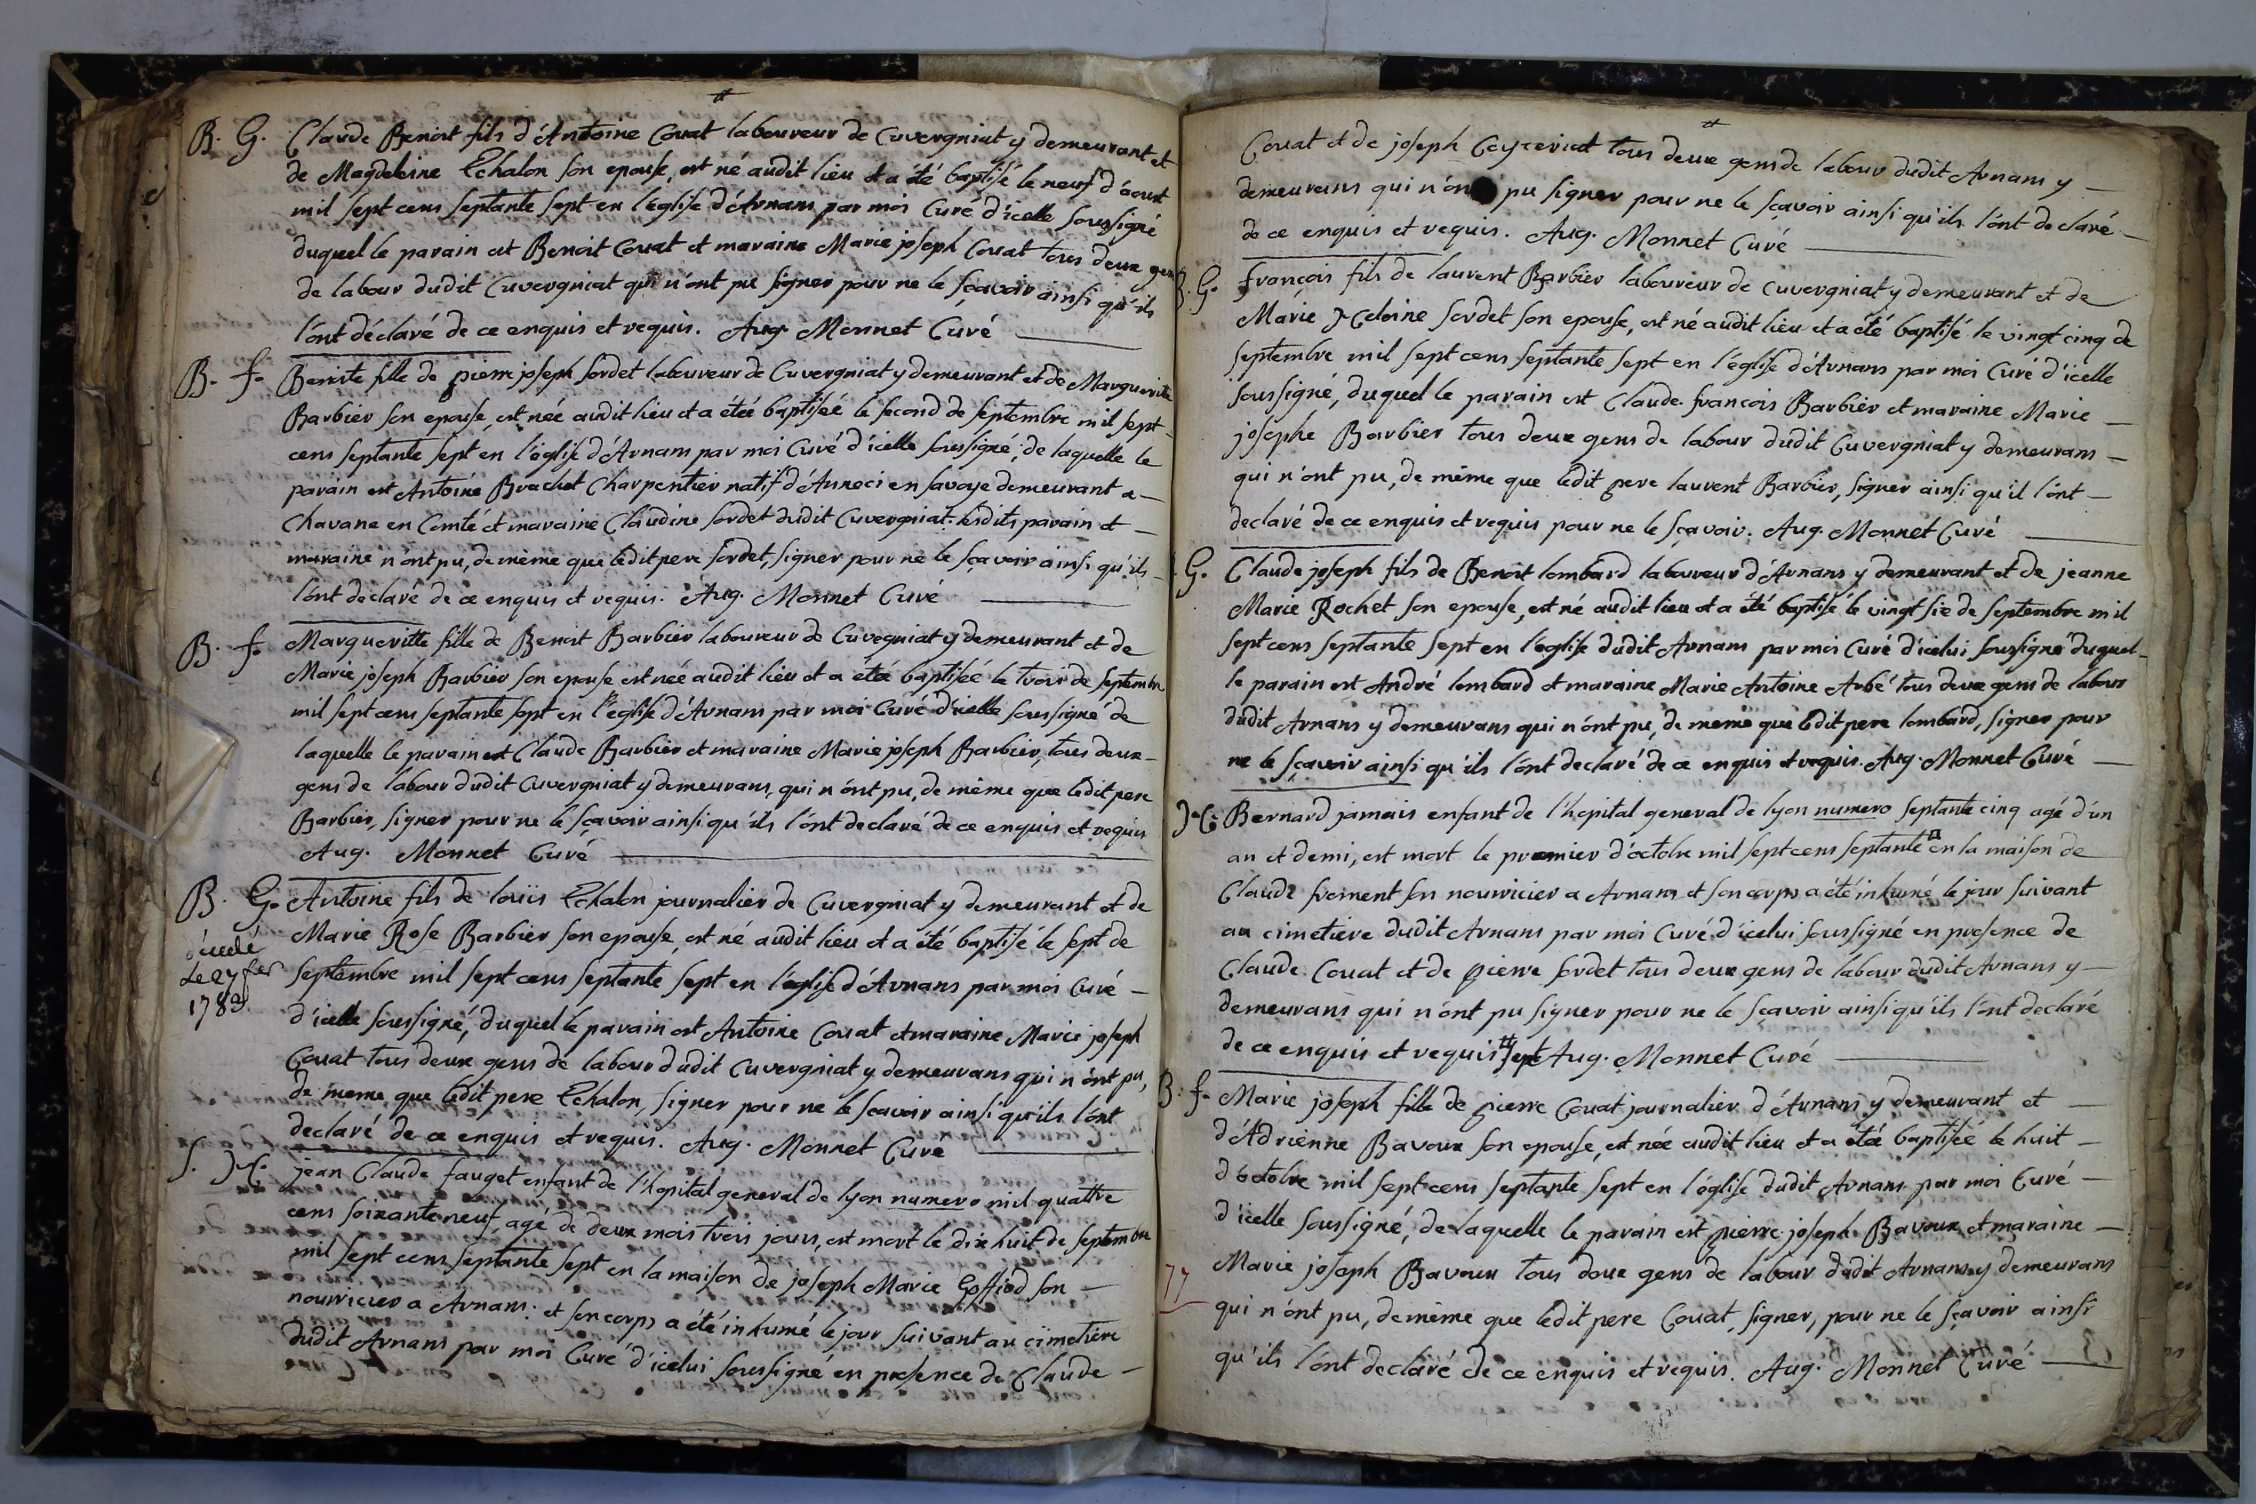 B. G. Claude Benoit fils d'Antoine Couat laboureur de Cuvergniat y demeurant et
de Magdeleine Echalon son epouse, est né audit lieu et a été baptisé le neuf d'aoust
mil sept cens septante sept en l'église d'Arnans par moi Curé d'icelle soussigné
duquel le parain est Benoit Couat et maraine Marie joseph Couat tous deux gens
de labour dudit Cuvergniat qui n'ont pu signer pour ne le sçavoir ainsi qu'ils
l'ont déclaré de ce enquis et requis. Aug. Monnet Curé
B. f. Benoite fille de pierre joseph sordet laboureur de Cuvergniat y demeurant et de Margueritte
Barbier son epouse, est née audit lieu et a étée baptiséé le second de septembre mil sept
cens septante sept en l'église d'Arnans par moi Curé d'icelle soussigné, de laquelle le
parain est Antoine Brachet Charpentier natif d'Anneci en savoye demeurant a
Chavane en Comté et maraine Claudine sordet dudit Cuvergniat. lesdits parain et
maraine n'ont pu, de même que ledit pere sordet, signer pour ne le sçavoir ainsi qu'ils
l'ont declaré de ce enquis et requis. Aug. Monnet Curé
B. f. Margueritte fille de Benoit Barbier laboureur de Cuvegniat y demeurant et de
Marie joseph Barbier son epouse est née audit lieu et a étée baptiséé le trois de septembre
mil sept cens septante sept en l'eglise d'Arnans par moi Curé d'icelle soussigné de
laquelle le parain est Claude Barbier et maraine Marie joseph Barbier, tous deux
gens de labour dudit Cuvergniat y demeurans, qui n'ont pu, de même que ledit pere
Barbier, signer pour ne le sçavoir ainsi qu'ils l'ont declaré de ce enquis et requis
Aug. Monnet Curé
B. G. Antoine fils de louis Echalon journalier de Cuvergniat y demeurant et de
Marie Rose Barbier son epouse, est né audit lieu et a été baptisé le sept de
1783.
septembre mil sept cens septante sept en l'église d'Arnans par moi Curé
d'icelle soussigné, duquel le parain est Antoine Couat et maraine Marie joseph
Couat tous deux gens de labour dudit Cuvergniat y demeurans qui n'ont pu,
de meme que ledit pere Echalon, signer pour ne le sçavoir ainsi qu'ils l'ont
declaré de ce enquis et requis. Aug. Monnet Curé
jean Claude fauget enfant de l'hopital general de lyon numero mil quattre
cens soixante neuf, agé de deux mois trois jours, est mort le dix huit de septembre
mil sept cens septante sept en la maison de joseph Marie Goffiod son
nourricier a Arnans. et son corps a été inhumé le jour suivant au cimetiere
dudit Arnans par moi Curé d'icelui soussigné en presence de Claude
Couat et de joseph tous deux gens de labour dudit Arnans y
demeurans qui n'ont pu signer pour ne le sçavoir ainsi qu'ils l'ont declaré
de ce enquis et requis. Aug. Monnet Curé
B. G. françois fils de laurent Barbier laboureur de cuvergniat y demeurant et de
Marie sordet son epouse, est né audit lieu et a été baptisé le vingt cinq de
septembre mil sept cens septante sept en l'église d'Arnans par moi Curé d'icelle
soussigné, duquel le parain est Claude françois Barbier et maraine Marie
josephe Barbier tous deux gens de labour dudit Cuvergniat y demeurans
qui n'ont pu, de même que ledit pere laurent Barbier, signer ainsi qu'il l'ont
declaré de ce enquis et requis pour ne le sçavoir. Aug. Monnet Curé
G. Claude joseph fils de Benoit lombard laboureur d'Arnans y demeurant et de jeanne
Marie Rochet son epouse, est né audit lieu et a été baptisé le vingt six de septembre mil
sept cens septante sept en l'eglise dudit Arnans par moi Curé d'icelui soussigné duquel
le parain est André lombard et maraine Marie Antoine Arbé tous deux gens de labour
dudit Arnans y demeurans qui n'ont pu, de meme que ledit pere lombard, signer pour
ne le sçavoir ainsi qu'ils l'ont declaré de ce enquis et requis. Aug. Monnet Curé
Bernard jamais enfant de l'hopital general de lyon numero septante cinq agé d'un
an et demi, est mort le premier d'octobre mil sept cens septante # en la maison de
Claude froment son nourricier a Arnans et son corps a été inhumé le jour suivant
au cimetiere dudit Arnans par moi Curé d'icelui soussigné en presence de
Claude Couat et de pierre sordet tous deux gens de labour dudit Arnans y
demeurans qui n'ont pu signer pour ne le sçavoir ainsi qu'ils l'ont declaré
de ce enquis et requis # sept Aug. Monnet Curé
B. f. Marie joseph fille de pierre Couat journalier d'Arnans y demeurant et
d'Adrienne Bavoux son epouse, est née audit lieu et a étée baptiséé le huit
d'octobre mil sept cens septante sept en l'église dudit Arnans par moi Curé
d'icelle soussigné, de laquelle le parain est pierre joseph Bavoux et maraine
77
Marie joseph Bavoux tous deux gens de labour dudit Arnans y demeurans
qui n'ont pu, de même que ledit pere Couat, signer, pour ne le sçavoir ainsi
qu'ils l'ont declaré de ce enquis et requis. Aug. Monnet Curé